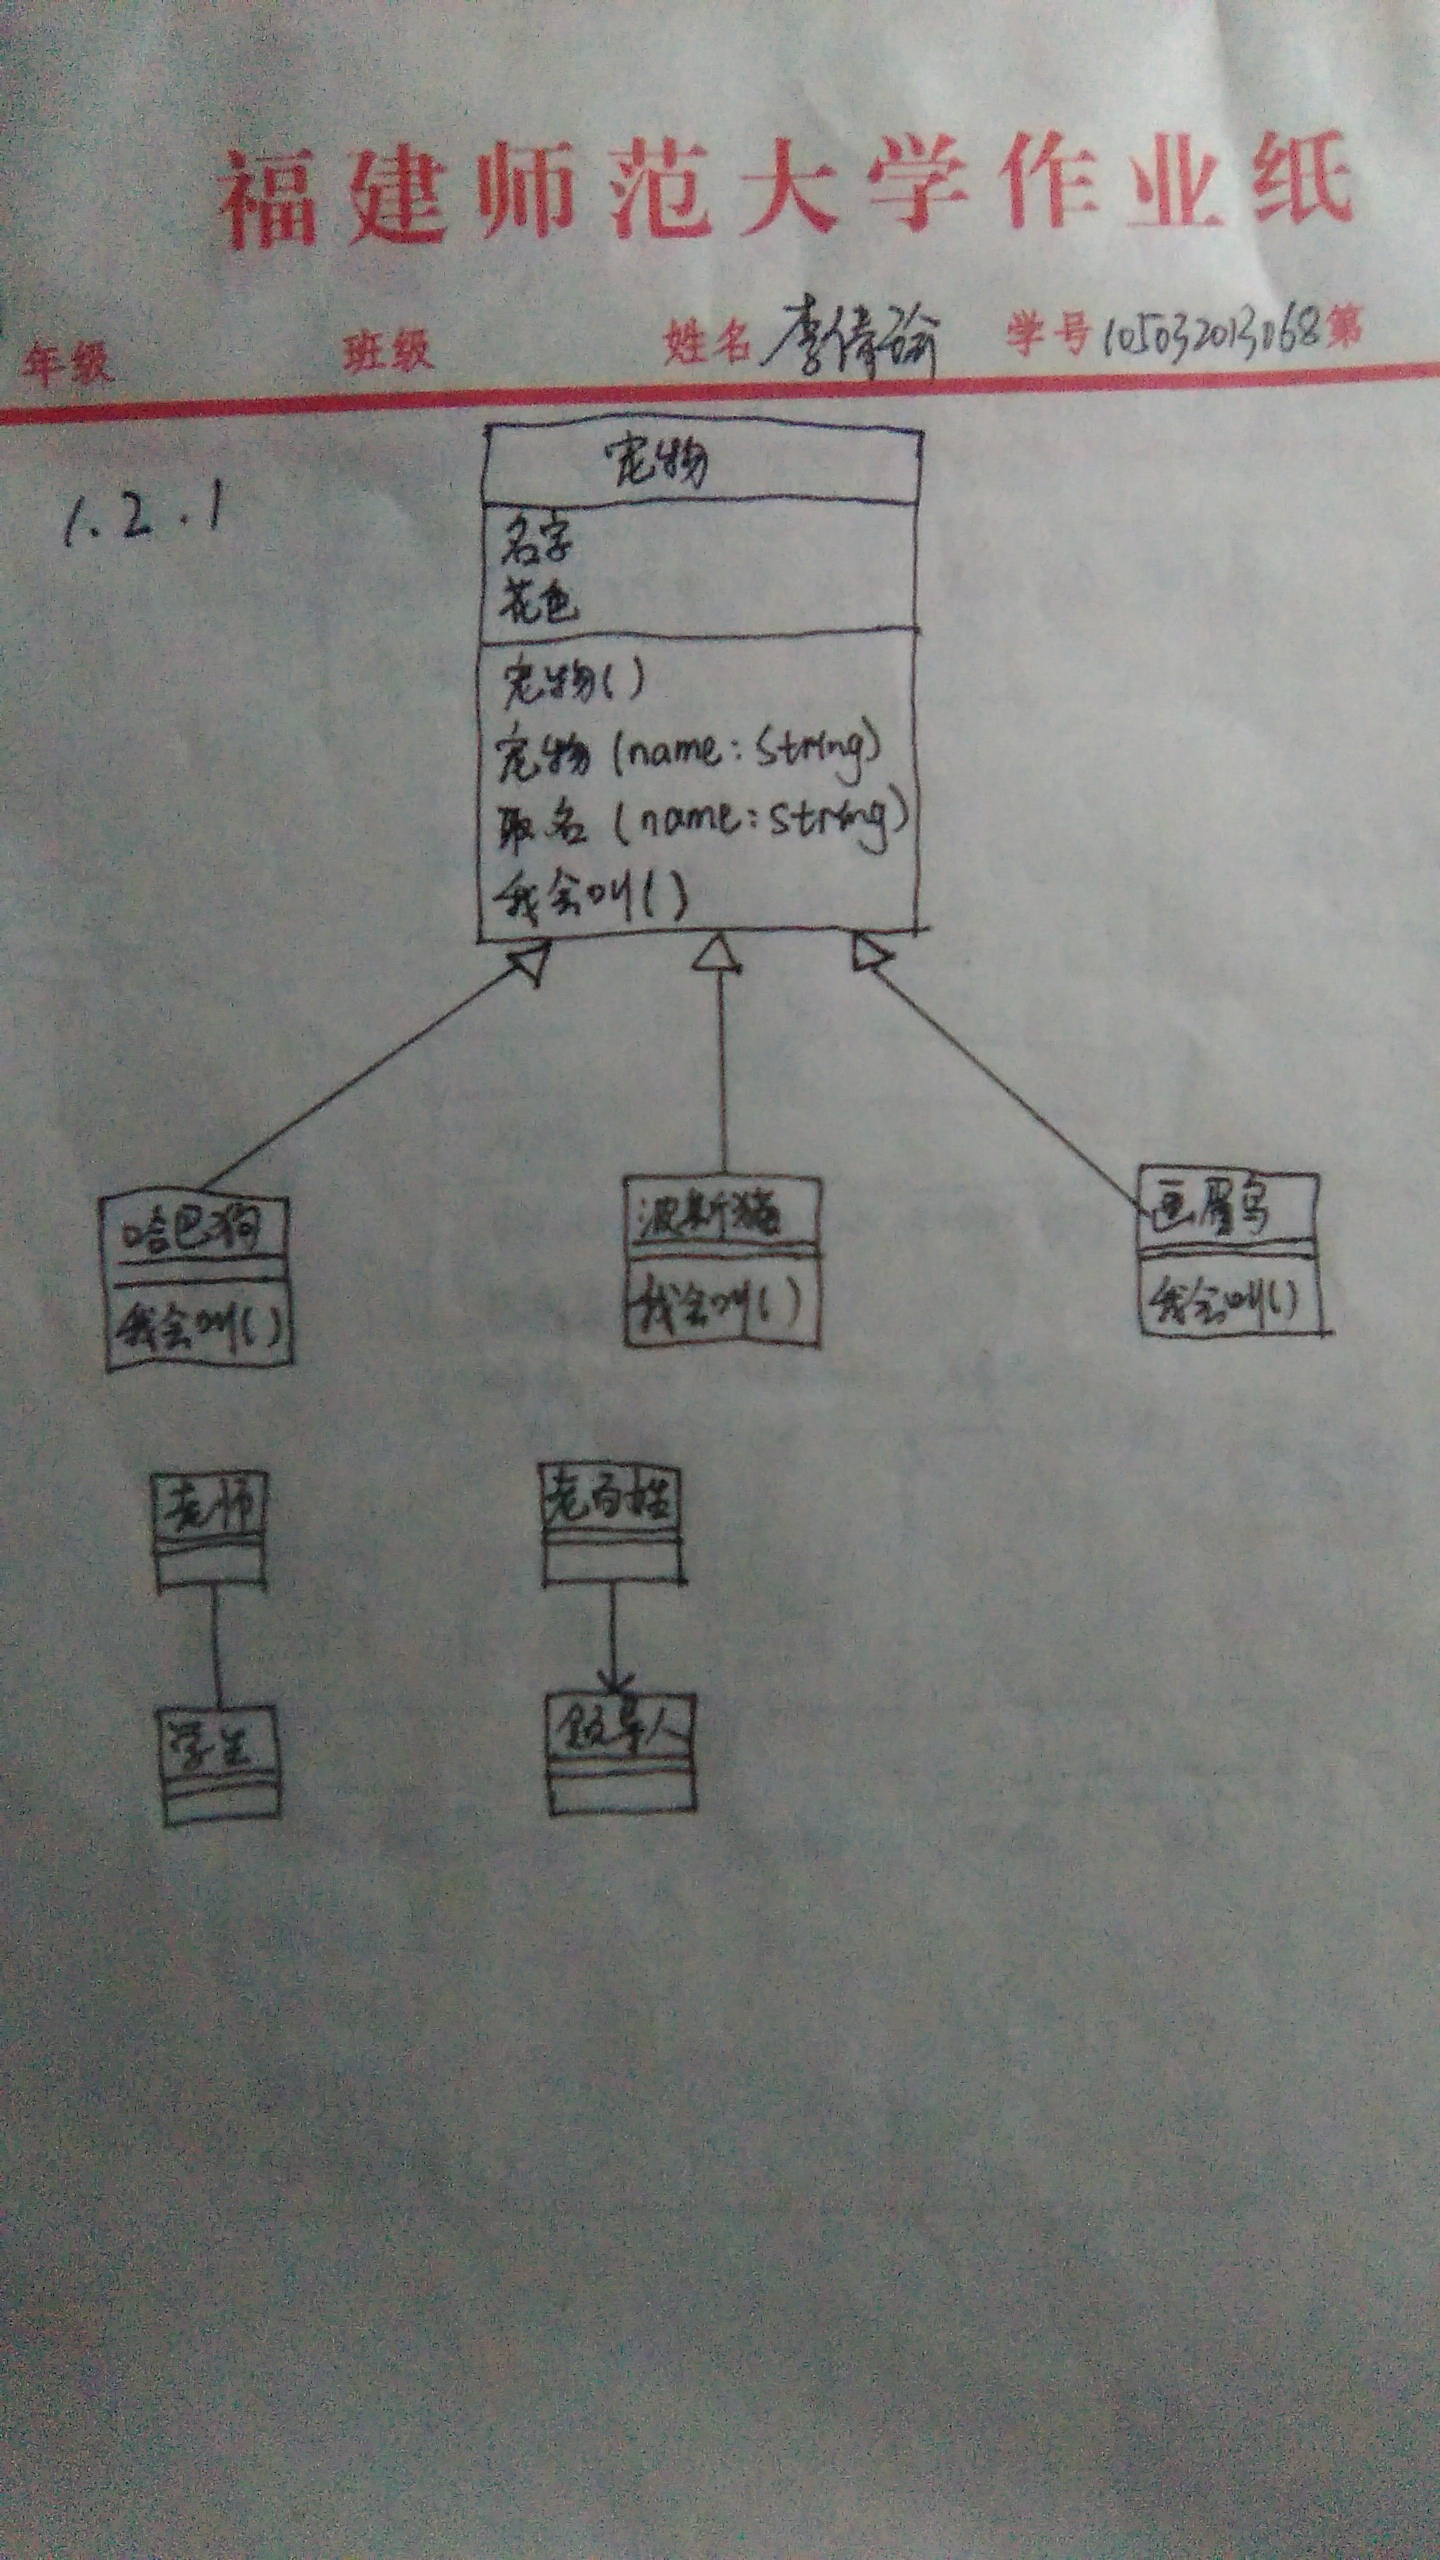 福建师范大学作业纸
年级 班级 姓名 李倩瑜 学号 105032013068 第
1.2.1
宠物
名字
花色
宠物()
宠物(name:String)
取名(name:String)
我会叫()
哈巴狗
我会叫()
波斯猫
我会叫()
画眉鸟
我会叫()
老师
学生
老百姓
领导人